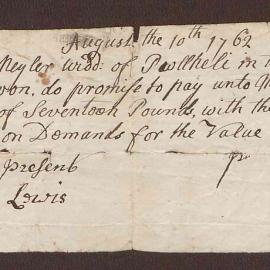 August the 10th 1762
Meyler widd: of Pwllheli in
von, do promise to pay unto
of Seventeen Pounds, with the
on Demands for the Value
present
Lewis